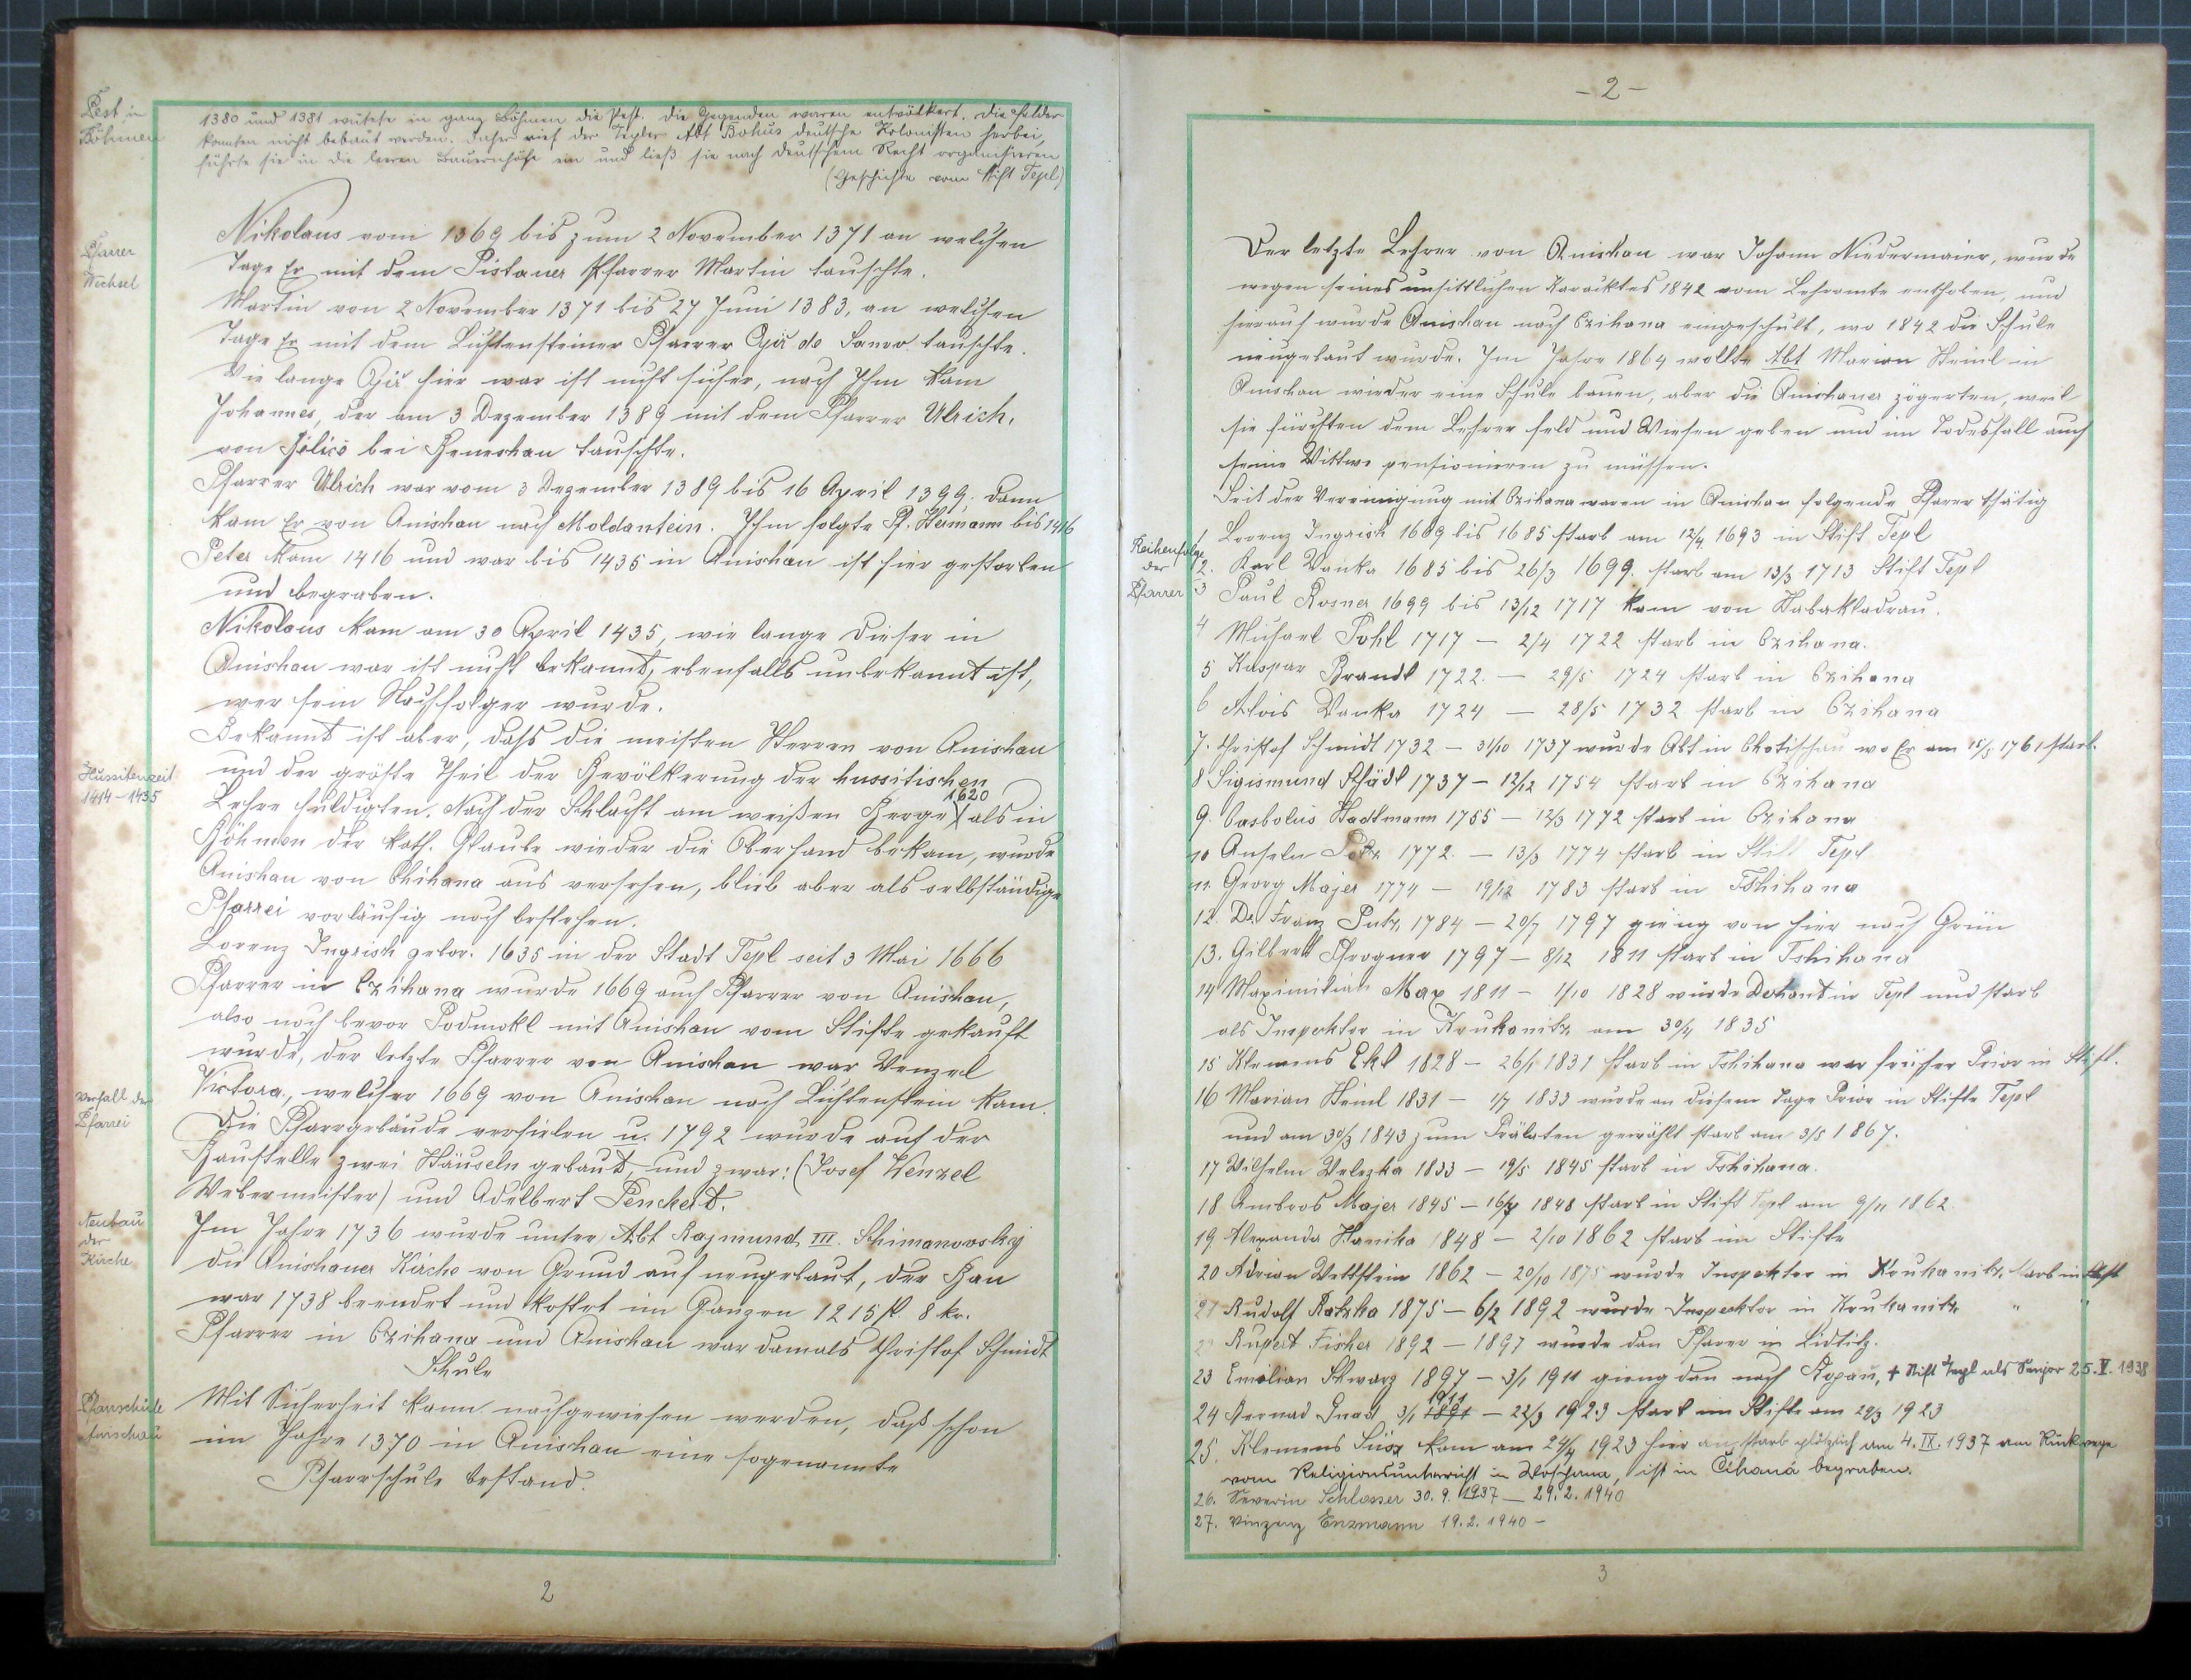 Pest in
Böhmen
1380 und 1381 wütete in ganz Böhmen die Pest. Die Gegenden waren entvölkert. Die Felder
konnten nicht bebaut werden. Daher rief der Tepler Abt Bohus deutsche Kolonisten herbei,
führte sie in die leeren Bauernhöfe ein und ließ sie nach deutschem Recht organisieren
(Geschichte vom Stift Tepl)
Pfarrer
Wechsel
Nikolaus vom 1369 bis zum 2 November 1371 an welchen
Tage Er mit dem Pistauer Pfarrer Martin tauschte.
Martin von 2 November 1371 bis 27 Juni 1383, an welchen
Tage Er mit dem Luchtensteiner Pfarrer tauschte.
Wie lange hier war ist nicht sicher, nach Ihm kam
Johannes, der am 3 Dezember 1389 mit dem Pfarrer Ulrich,
von bei Beneschau tauschte.
Pfarrer Ulrich war vom 3 Dezember 1389 bis 16 April 1399. Dann
kam Er von Anischau nach Moldautein. Ihm folgte Pf. Hermann bis 1416
Peter kam 1416 und war bis 1435 in Anischau ist hier gestorben
und begraben.
Nikolaus kam am 30 April 1435, wie lange dieser in
Anischau war ist nicht bekannt, ebenfalls unbekannt ist,
wer sein Nachfolger wurde.
Hussitenzeit
1414 - 1435
Bekannt ist aber, dass die meisten Herren von Anischau
und der größte Theil der Bevölkerung der hussitischen
Lehre huldigten. Nach der Schlacht am weißen Berge 1620 als in
Böhmen der kath. Glaube wieder die Oberhand bekam, wurde
Anishau von Chihana aus versehen, blieb aber als selbständige
Pfarrei vorläufig noch bestehen.
Lorenz Ingrish gebor. 1635 in der Stadt Tepl seit 3 Mai 1666
Pfarrer in Czihana wurde 1669 auch Pfarrer von Anishau,
also noch bevor Podmokl mit Anishau vom Stifte gekauft
wurde, der letzte Pfarrer von Anischau war Wenzel
Victora, welcher 1669 von Anischau nach Luchtenstein kam.
Verfall der
Pfarrei
Die Pfarrgebäude verfielen u. 1792 wurde auf der
Baustelle zwei Häuseln gebaut, und zwar: (Josef Wenzel
Webermeister) und Adelbert Penckert.
Neubau
der
Kirche
Im Jahre 1736 wurde unter Abt Raymund III. Schimanovsky
die Anishauer Kirche von Grund auf neugebaut, der Bau
war 1738 beendet und kostet im Ganzen 1215 fl. 8 kr.
Pfarrer in Czihana und Anischau war damals Christof Schmidt
Schule
Pfarrschule
Anischau
Mit Sicherheit kann nachgewiesen werden, daß schon
im Jahre 1370 in Anischau eine sogenannte
Pfarrschule bestand.
2
- 2 -
Der letzte Lehrer von Anischau war Johann Niedermaier, wurde
wegen seines unsittlichen Karacktes 1842 vom Lehramte enthoben, und
hierauf wurde Anischau nach Czihana eingeschult, wo 1842 die Schule
neugebaut wurde. Im Jahre 1864 wollte Abt Marian Heinl in
Anischau wieder eine Schule bauen, aber die Anischauer zögerten, weil
sie fürchten dem Lehrer Feld und Wiesen geben und im Todesfall auch
seine Wittwe pensionieren zu müssen.
Seit der Vereinigung mit Czihana waren in Anischau folgende Pfarrer thätig
Reihenfolge
der
Pfarrer
1 Lorenz Ingrisch 1669 bis 1685 starb am 12/4 1693 in Stift Tepl
2. Karl Vanka 1685 bis 26/3 1699. starb am 13/3 1713 Stift Tepl
3 Paul Rosner 1699 bis 13/12 1717 kam von Habakladrau.
4 Michael Pohl 1717 - 2/4 1722 starb in Czihana.
5 Kaspar Brandl 1722. - 29/5 1724 starb in Czihana
6 Alois Vanka 1724 - 28/5 1732 starb in Czihana
7. Christof Schmidt 1732 - 31/10 1737 wurde Abt in Chotischau wo Er am 15/5 1761 starb.
8 Sigismund Schädl 1737 - 12/12 1754 starb in Czihana
9. Hackmann 1755 - 12/3 1772 starb in Czihana
10 Anselm 1772. - 13/3 1774 starb in Stift Tepl
11. Georg Majer 1774 - 19/12 1783 starb in Tshihana
12. Dr. Franz Putz, 1784 - 20/7 1797 gieng von hier nach Grün
13. Gilbert Pfrogner 1797 - 8/12 1811 starb in Tshihana
14 Maximilian Max 1811 - 1/10 1828 wurde Dehant in Tepl und starb
als Inspektor in Krukanitz am 30/4 1835
15 Klemens Ekl 1828 - 26/1 1831 starb in Tshihana war früher Prior in Stift.
16 Marian Heinl 1831 - 1/7 1833 wurde an diesem Tage Prior in Stifte Tepl
und am 30/3 1843 zum Prälaten gewählt starb am 3/5 1867.
17 Wilhelm Welezka 1833 - 19/5 1845 starb in Tshihana.
18 Ambros Majer 1845 - 16/7 1848 starb in Stift Tepl am 9/11 1862.
19 Alexander Hanika 1848 - 2/10 1862 starb im Stifte
20 Adrian Wettstein 1862 - 20/10 1875 wurde Inspektor in Krukanitz, starb in Stift
21 Rudolf Ratzka 1875 - 6/2 1892 wurde Inspecktor in Krukanitz " "
22 Rupert Fisher 1892 - 1897 wurde dan Pfarrer in Lidtitz.
23 Emilian Schwarz 1897 - 3/1 1911 gieng dan nach Kopau, + Stift Tepl als Senior 25. V. 1938
24 Bernad Gnad 3/1 1911 1891 - 22/3 1923 starb im Stifte am 29/3 1923
25. Klemens Süss kam am 24/4 1923 hier an, starb plötzlich am 4. IX. 1937 am Rückwege
vom Religionsunterricht in Woschana, ist in Čihaná begraben.
26. Severin Schlosser 30. 9. 1937 - 29. 2. 1940
27. Vinzenz Enzmann 19. 2. 1940 -
3